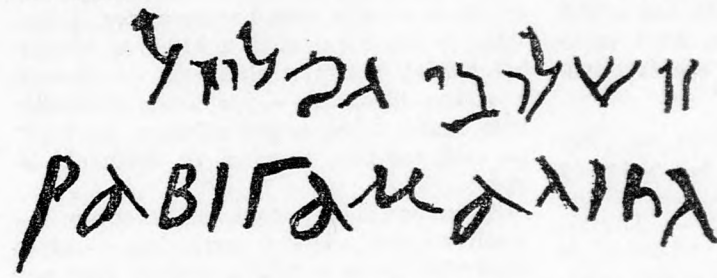 זו שלרבי גמליאל
ΡΑΒΙΓΑΜΑΛΙΗΛ